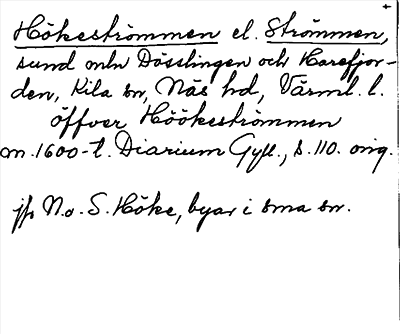 Hökeströmmen el. Strömmen,
sund mln Dösslingen och Harefjor-
den, Kila sn, Näs hd, Värml. l.
öffver Höökeströmmen
m. 1600-t. Diarium Gyll., s. 110. orig.
jfr N. o. S. Höke, byar i sma sn.